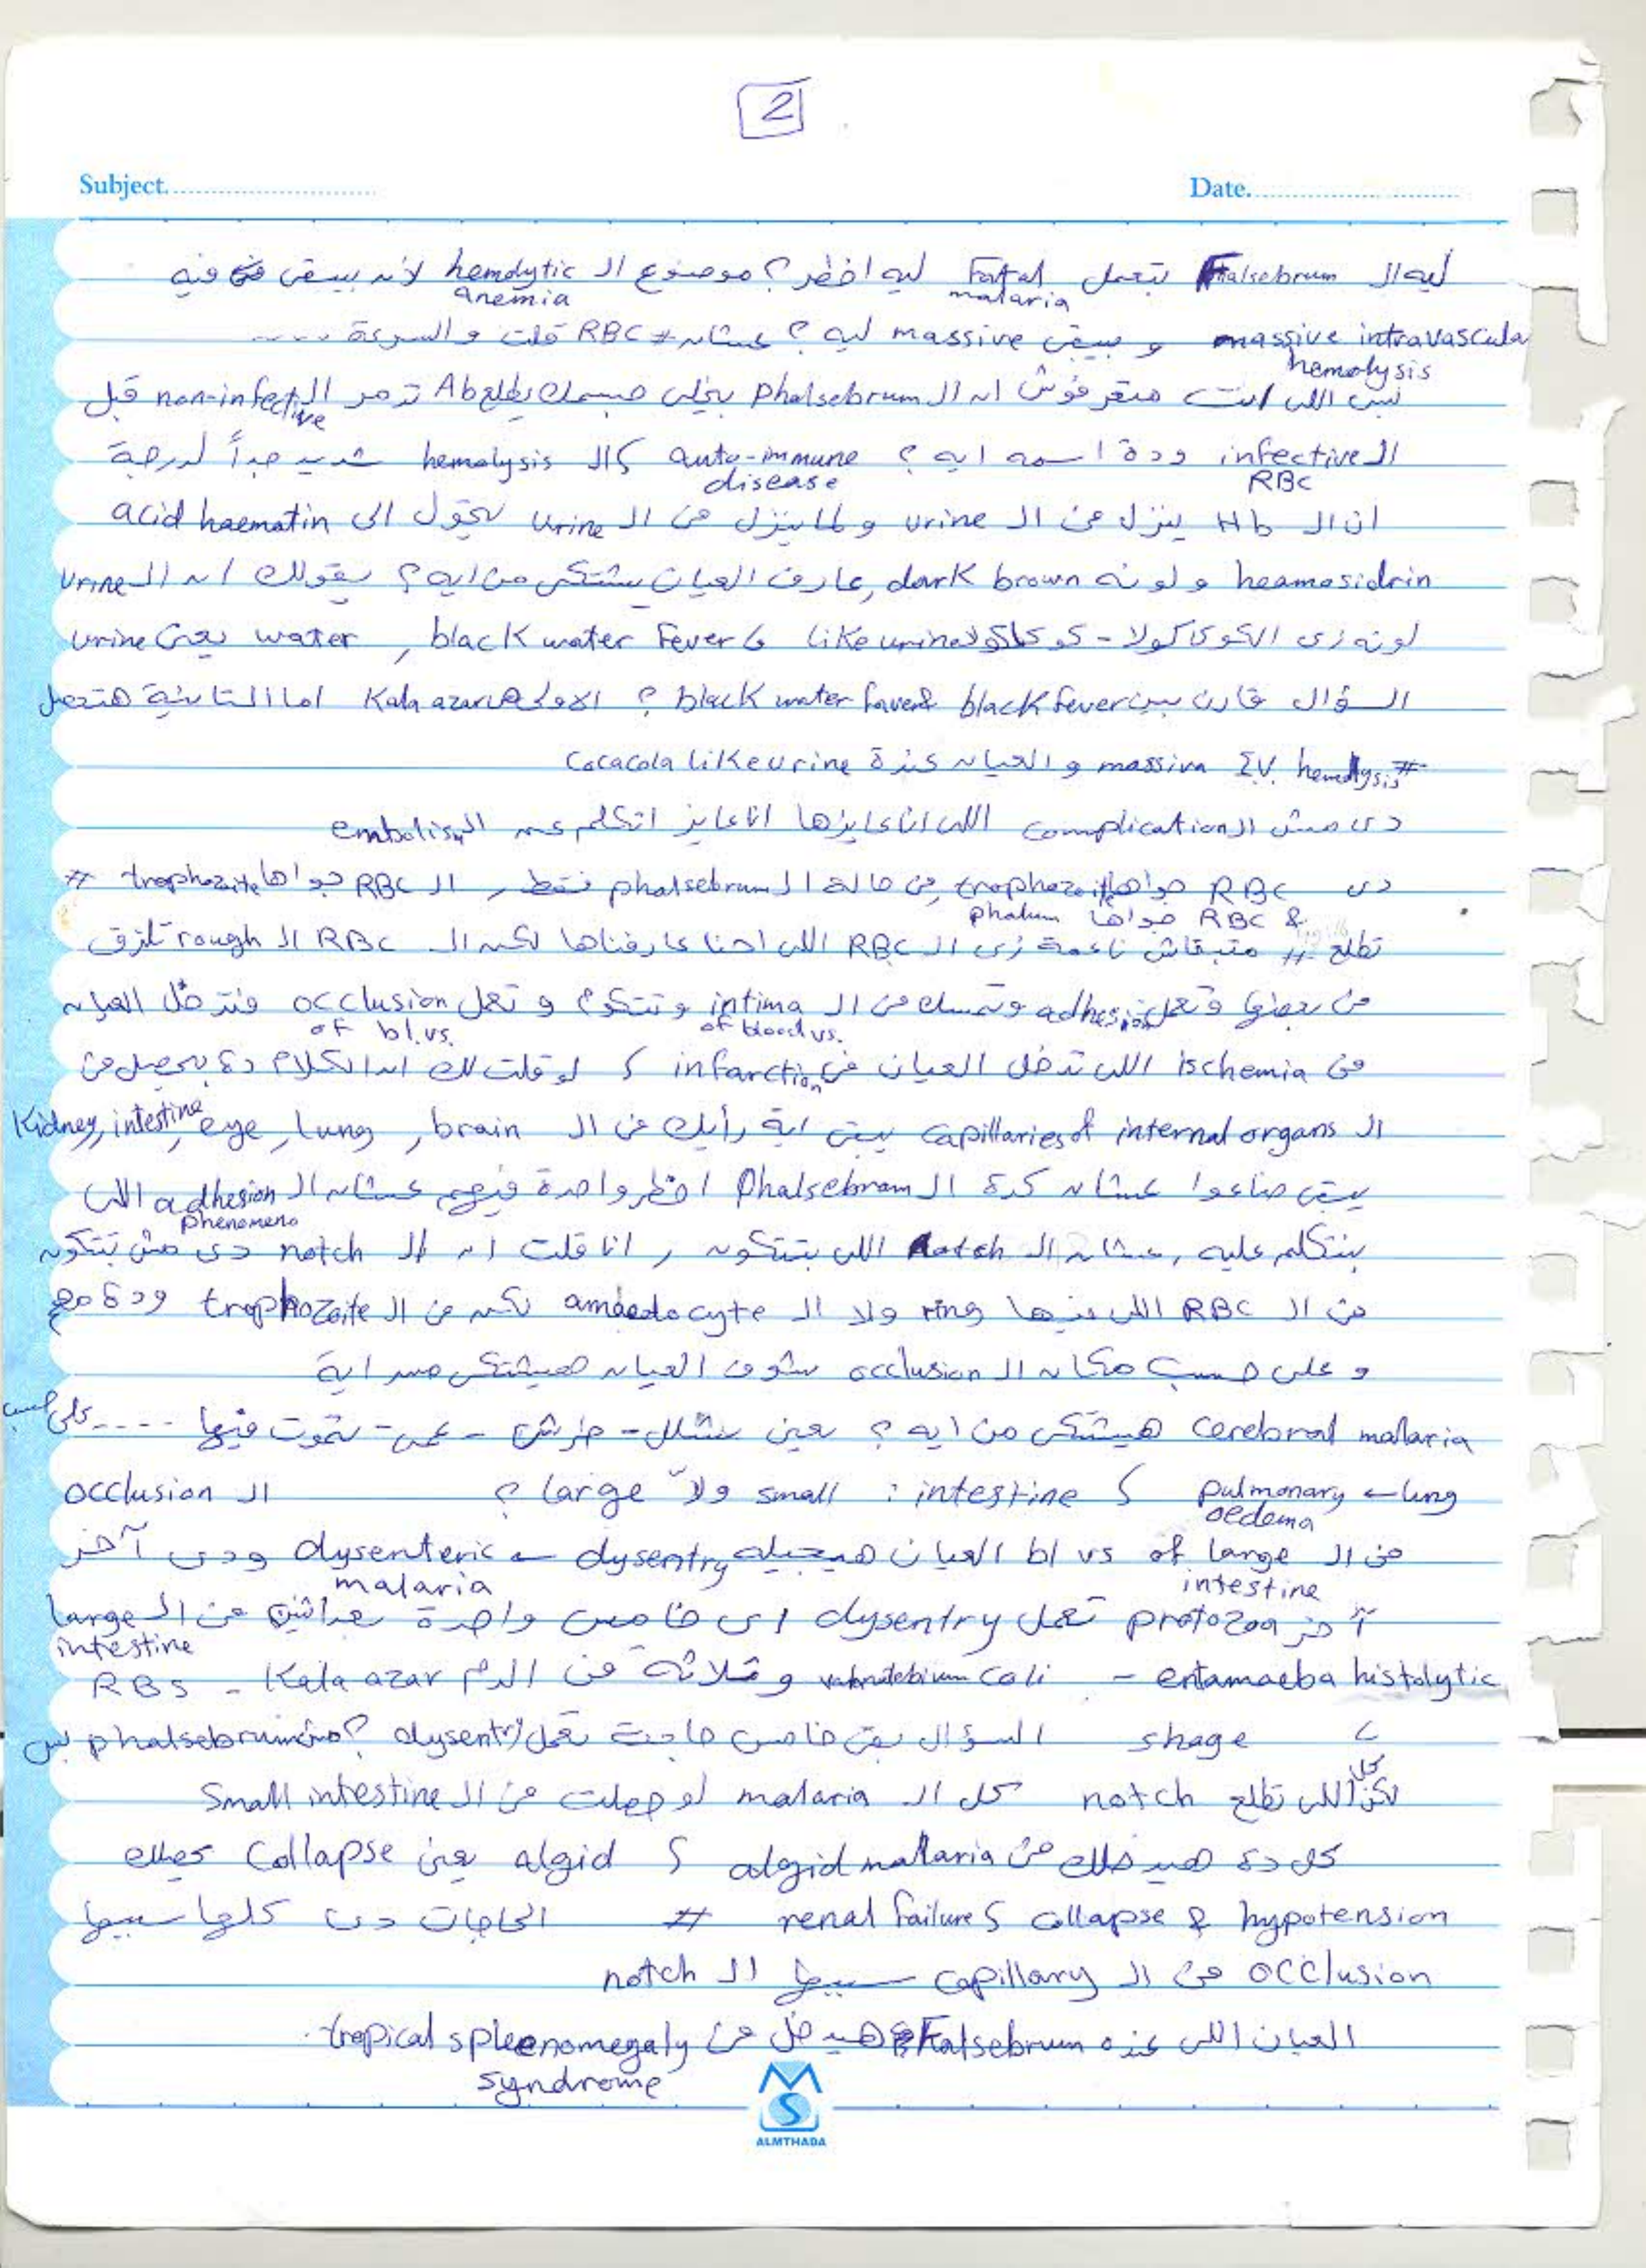 2
Subject. Date.
ليه ال Falsebrum بتعمل Fatal malaria ليه اخطر؟ موضوع ال hemolytic anemia لأنه بيبقى فيه
massive intravascular hemolysis و بيبقى massive ليه؟ عشان # RBC قلت والسرعة ....
بس اللى انت متعرفوش ان ال phalsebrum بيخلى جسمك يطلع Ab تدمر ال non-infective قبل
ال infective RBC ودة اسمه ايه؟ auto-immune disease كال hemolysis شديد جداً لدرجة
ان ال Hb ينزل فى ال urine ولما بينزل فى ال urine يتحول الى acid haematin
heamosidrin و لونه dark brown, عارف العيان بيشتكى من ايه؟ يقولك ان ال urine
لونه زى الكوكاكولا - كوكاكولا like urine & black water Fever, water يعنى urine
السؤال قارن بين black fever & black water faver؟ الاولى هى Kala azar اما التانية هتحصل
# massive I.V. hemolysis و العيان عندة Cocacola like urine
دى مش ال complication اللى انا عايزها انا عايز اتكلم عن ال embolism
دى RBC جواها trophozoite فى حالة ال phalsebrum فقط, ال RBC جواها trophozoite #
& RBC جواها phalum
تطلع # متبقاش ناعمة زى ال RBC اللى احنا عارفناها لكن ال RBC ال rough تلزق
فى بعضها وتعمل adhesion وتمسك فى ال intima of blood vs. وتتكوم و تعمل occlusion of bl.vs. فتدخل العيان
فى ischemia اللى تدخل العيان فى infarction & لو قلت لك ان الكلام دة بيحصل فى
ال capillaries of internal organs يبقى اية رأيك فى ال brain, lung, eye, intestine, Kidney
يبقى ضاعوا عشان كدة ال Phalsebram اخطر واحدة فيهم عشان ال adhesion phenomeno اللى
بنتكلم عليه, عشان ال notch اللى بتتكون, انا قلت ان ال notch دى مش بتتكون
فى ال RBC اللى فيها ring ولا ال amaedocyte لكن فى ال trophozoite ودة مع
و على حسب مكان ال occlusion شوف العيان هيشتكى من اية
cerebral malaria هيشتكى من ايه؟ يعنى شلل - خرس - عمى - تموت فيها .... على حسب
lung ← pulmonary oedema & intestine : small ولا large ؟ ال occlusion
فى ال bl vs of large intestine العيان هيجيله dysentry ← dysenteric malaria ودى آخر
آخر protozoa تعمل dysentry اى خامس واحدة بعد اتنين فى ال large intestine
entamaeba histolytic - coli و تلاتة فى الدم Kala azar - RBS
shage السؤال بقى خامس حاجة تعمل dysentry؟ مش phalsebrum بس
لكن كل اللى تطلع notch كل ال malaria لو حصلت فى ال Small intestine
كل دة هيدخلك فى algid malaria & algid يعنى Collapse
hypotension & collapse & renal failure # الحاجات دى كلها سببها
occlusion فى ال capillary سببها ال notch
العيان اللى عنده Falsebrum هيدخل فى tropical spleenomegaly syndrome.
ALMTHADA